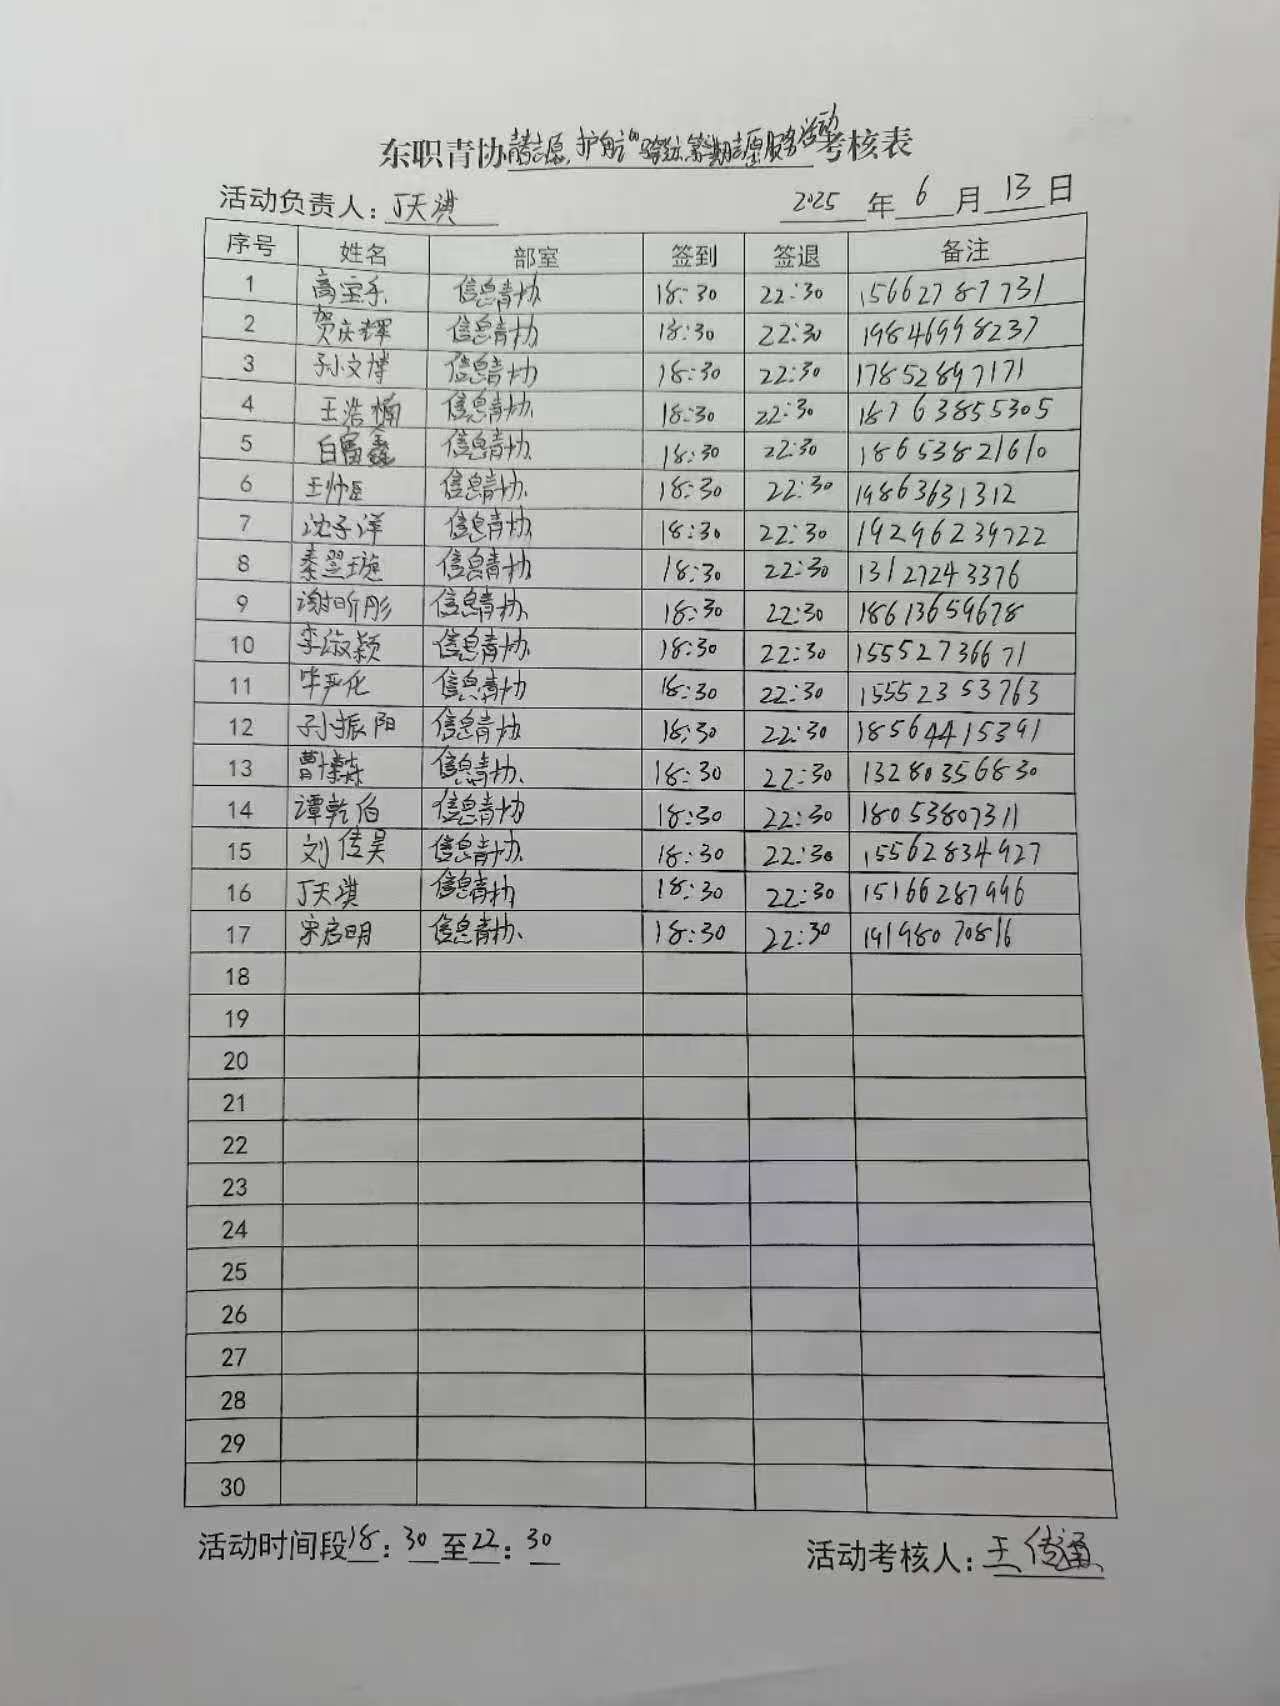 东职青协 志愿 护航 志愿服务活动 考核表
活动负责人：丁天淇 2025 年 6 月 13 日
序号 姓名 部室 签到 签退 备注
1 高宝禾 信息青协 18:30 22:30 15662787731
2 贺庆辉 信息青协 18:30 22:30 19846998237
3 孙文博 信息青协 18:30 22:30 17852897171
4 王浩楠 信息青协 18:30 22:30 18763855305
5 白富鑫 信息青协 18:30 22:30 18653821610
6 王帅臣 信息青协 18:30 22:30 19863631312
7 沈子洋 信息青协 18:30 22:30 19296239722
8 秦翌璇 信息青协 18:30 22:30 13127243376
9 谢昕彤 信息青协 18:30 22:30 18613659678
10 李淑颖 信息青协 18:30 22:30 15552736671
11 毕严化 信息青协 18:30 22:30 15552353763
12 孙振阳 信息青协 18:30 22:30 18564415391
13 曹博森 信息青协 18:30 22:30 13280356830
14 谭乾伯 信息青协 18:30 22:30 18053807311
15 刘传昊 信息青协 18:30 22:30 15562834927
16 丁天淇 信息青协 18:30 22:30 15166287996
17 宋启明 信息青协 18:30 22:30 19198070816
18
19
20
21
22
23
24
25
26
27
28
29
30
活动时间段18：30至22：30 活动考核人：王传通